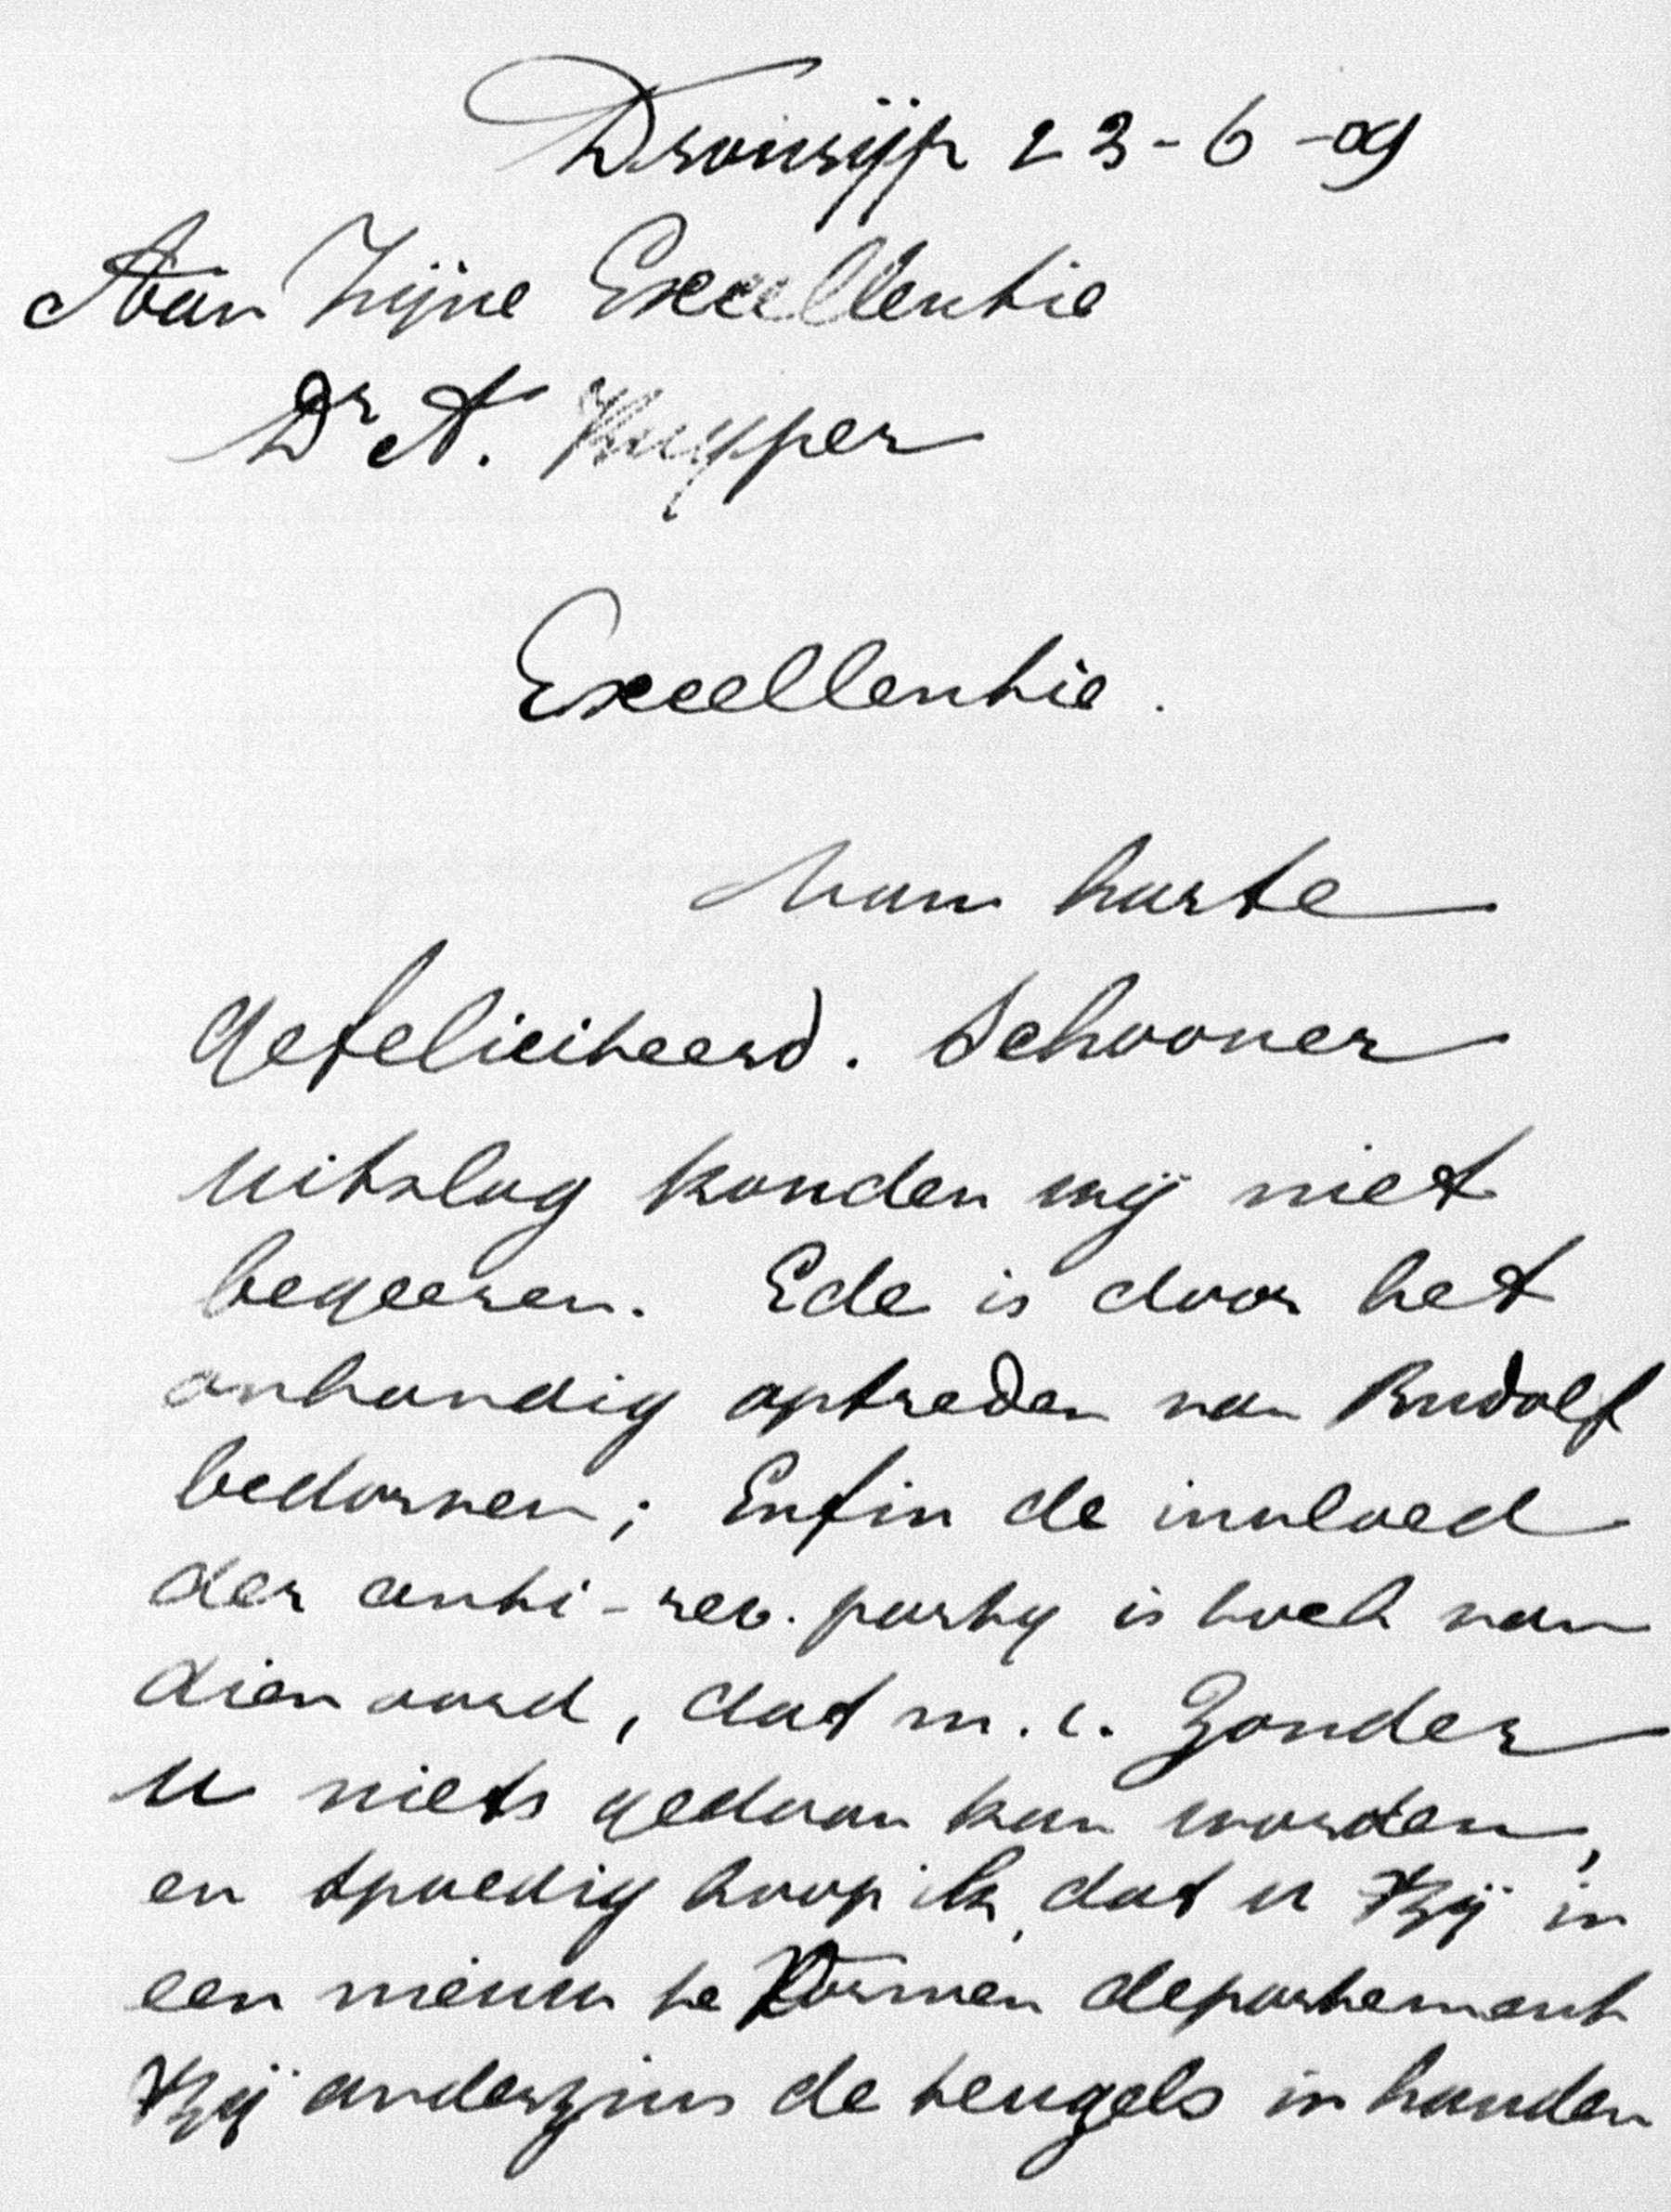 Dronrijp 23-6-09
Aan Zijne Excellentie
Dr A. Kuyper
Excellentie.
Van harte
gefeliciteerd. Schooner
uitslag konden wij niet
begeeren. Ede is door het
onhandig optreden van Rudolf
bedorven; Enfin de invloed
der anti-rev. party is toch van
dien aard, dat m.i. zonder
u niets gedaan kan worden,
en spoedig hoop ik, dat u tzij in
een nieuw te vormen departement
tzij anderzins de teugels in handen